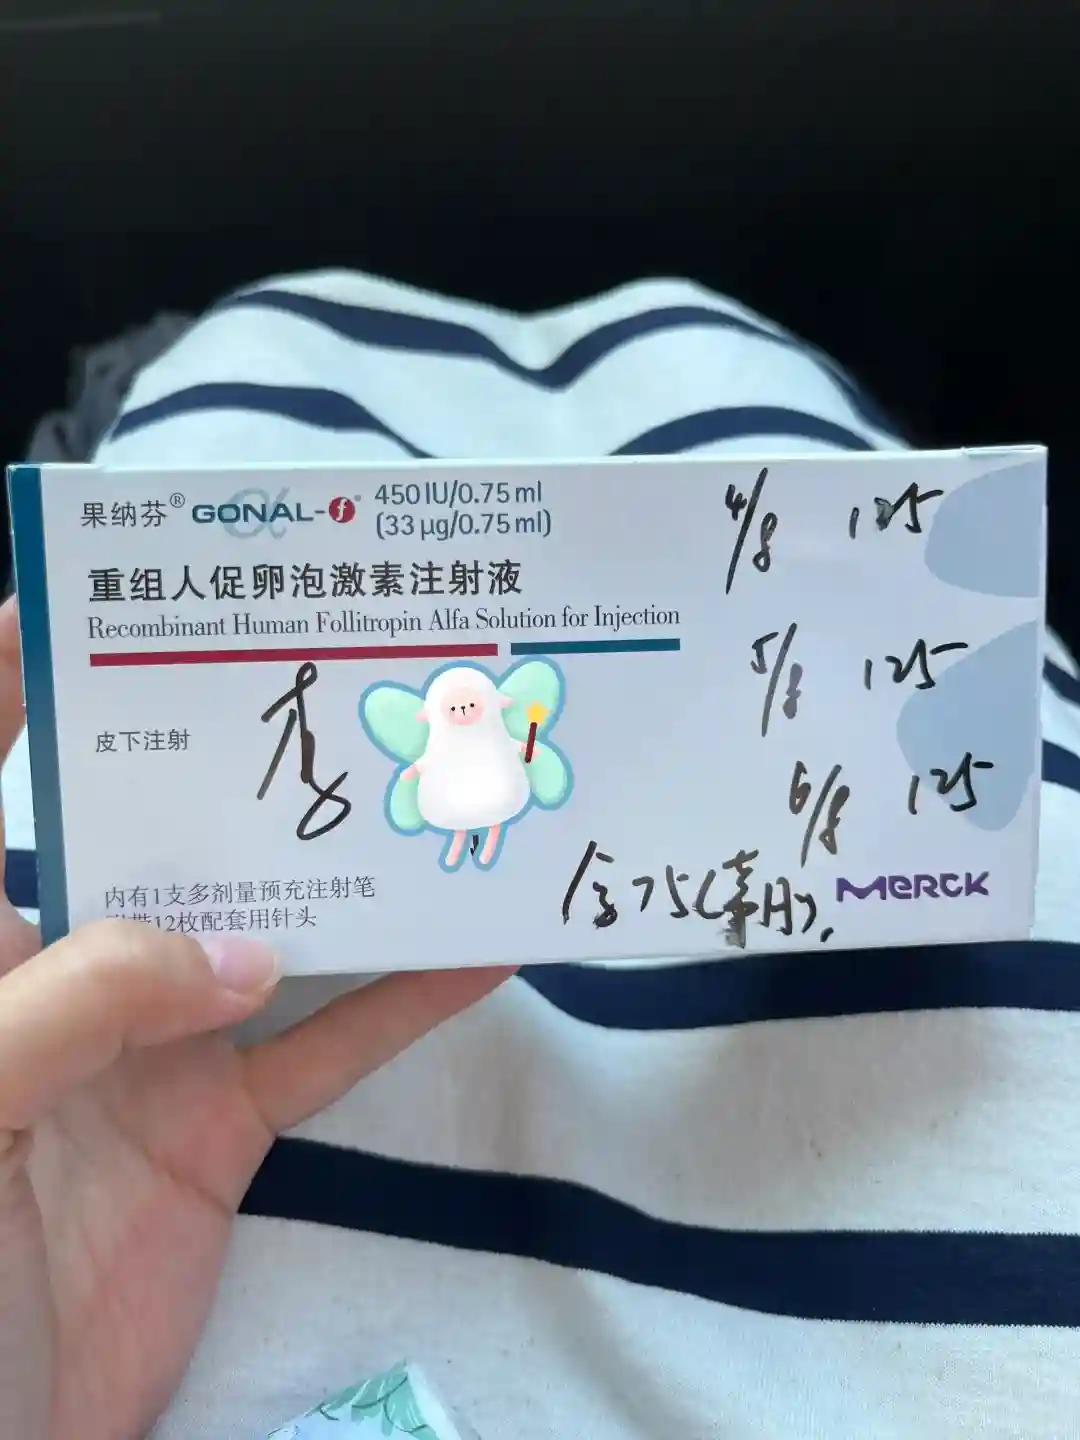 果纳芬® GONAL-f® 450 IU/0.75 ml
(33 μg/0.75 ml)
重组人促卵泡激素注射液
Recombinant Human Follitropin Alfa Solution for Injection
皮下注射
李
内有1支多剂量预充注射笔
附带12枚配套用针头
4/8 125
5/8 125
6/8 125
75
MERCK